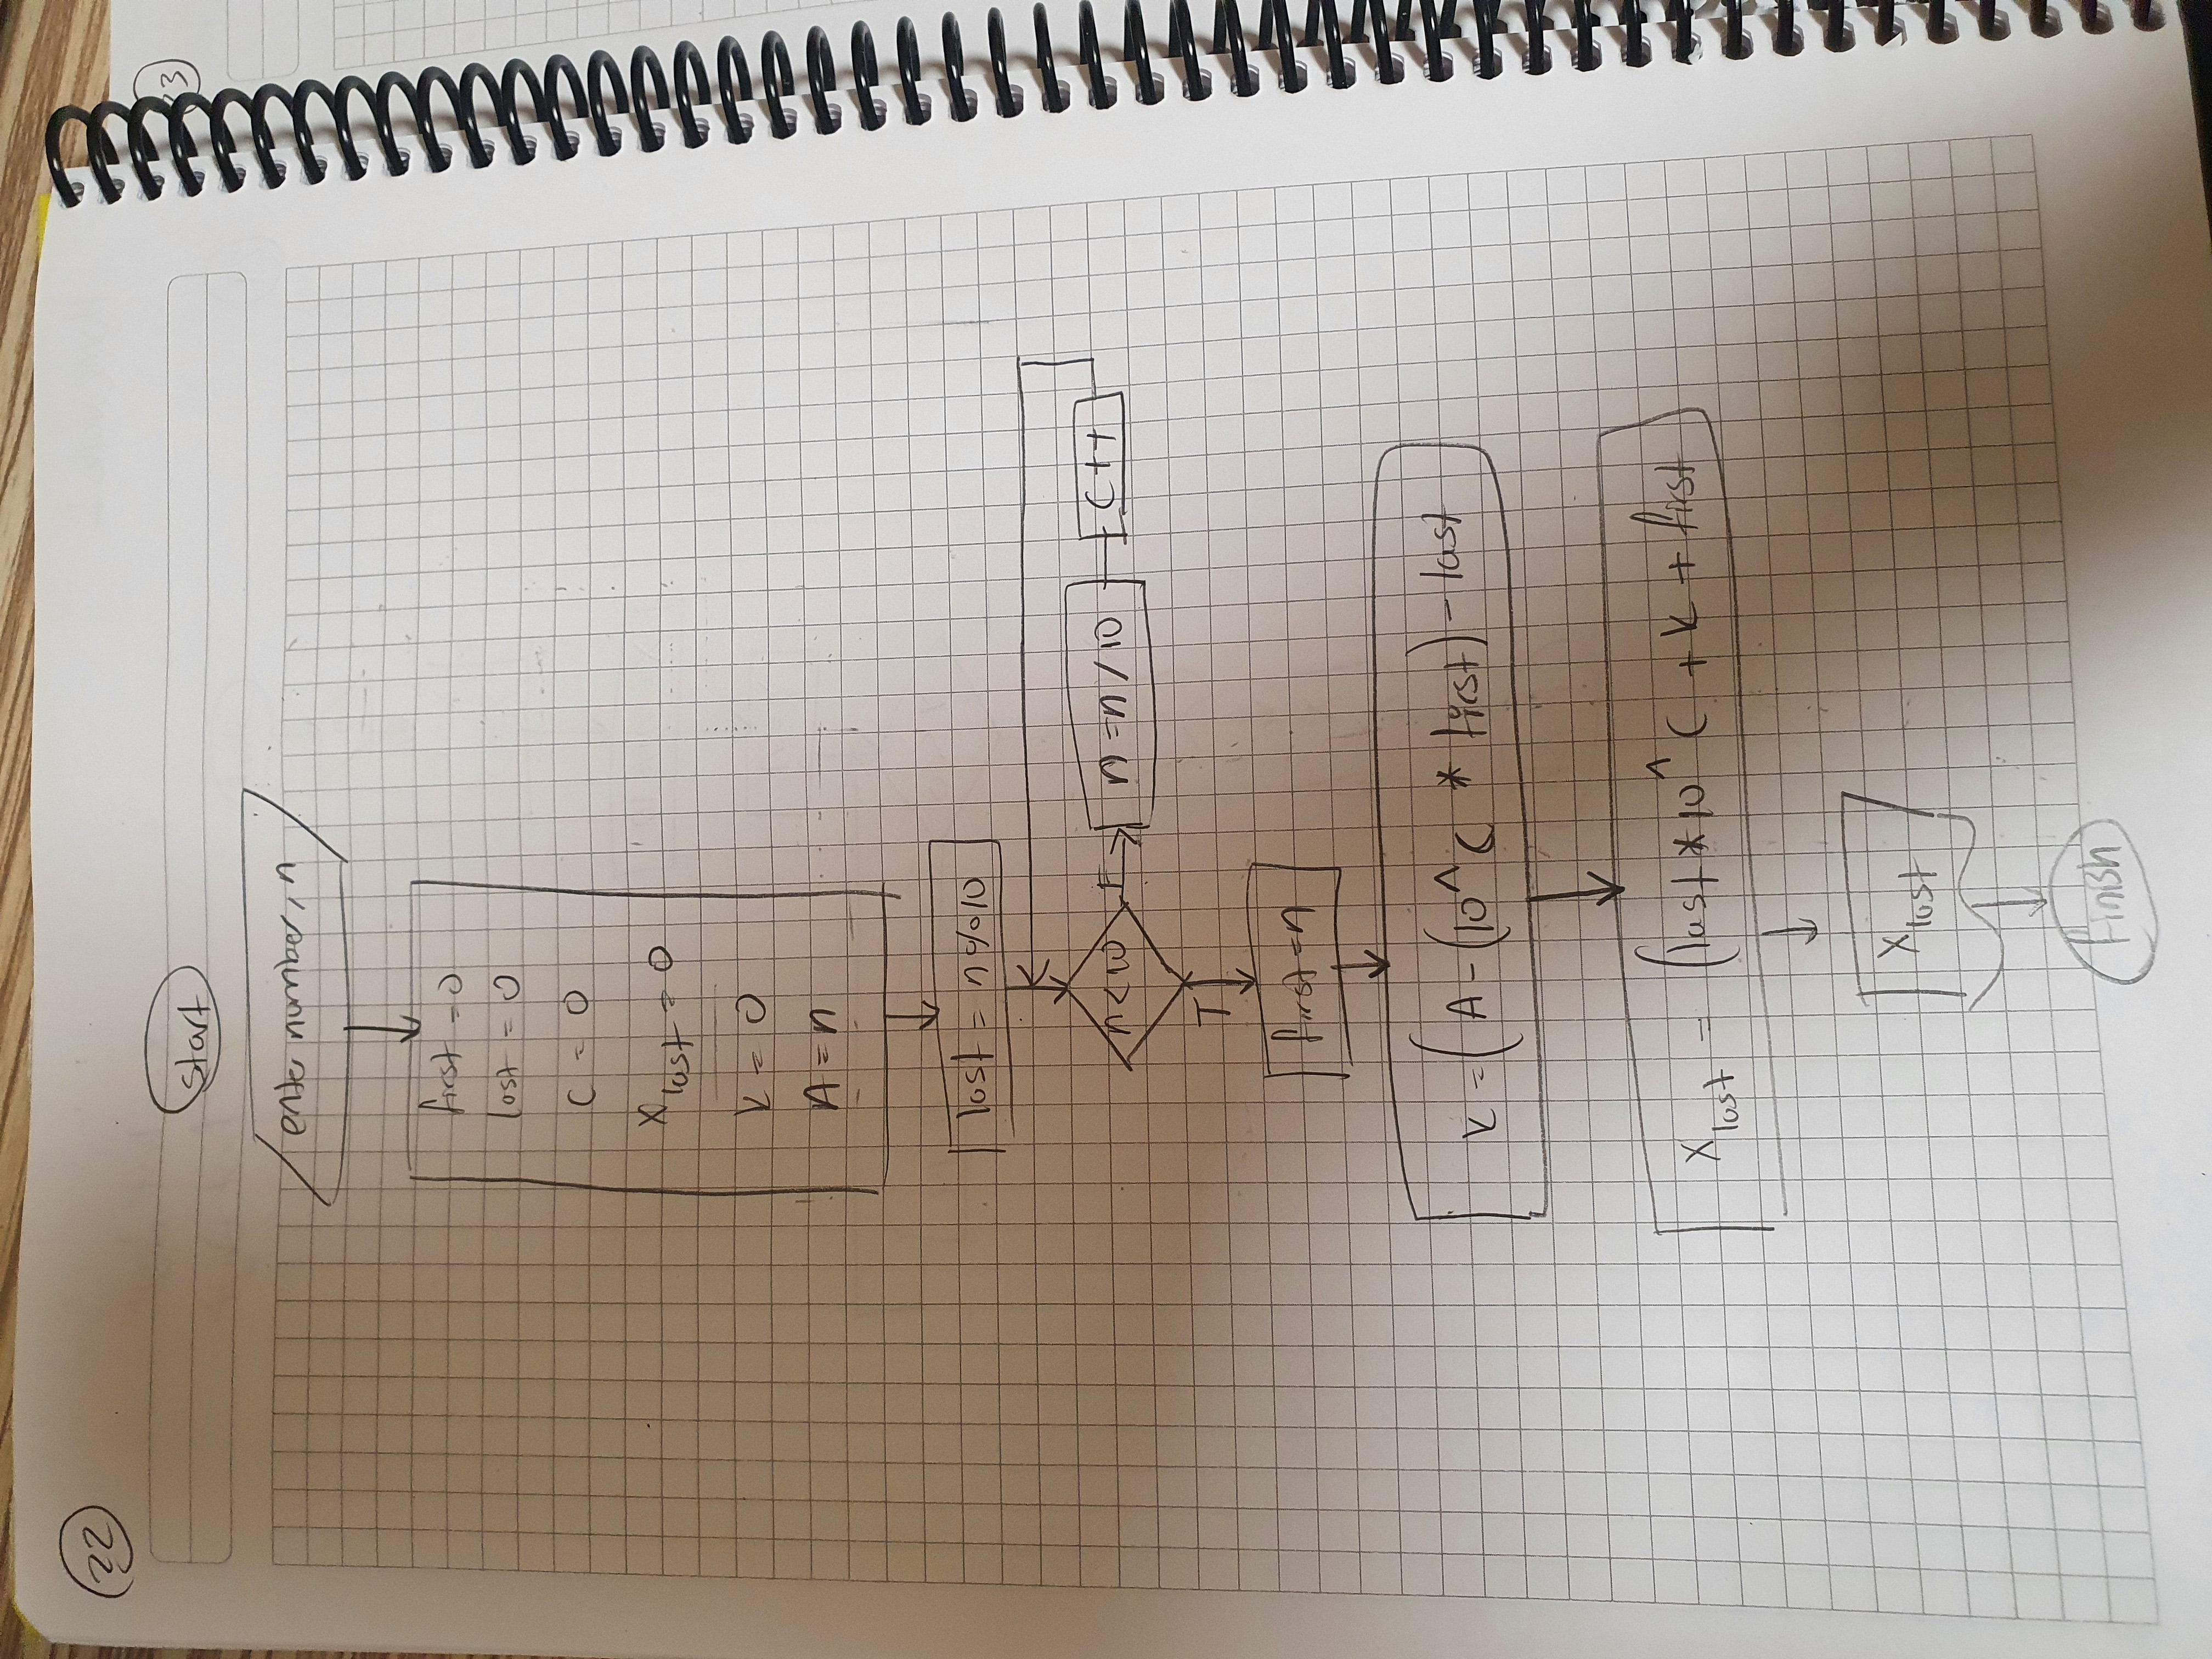 22
start
enter number, n
first = 0
last = 0
C = 0
X last = 0
K = 0
A = n
last = n%10
n<10
F
n = n/10
C++
T
first = n
K = (A - (10^C * first) - last
X last = (last * 10^C + K + first
X last
finish